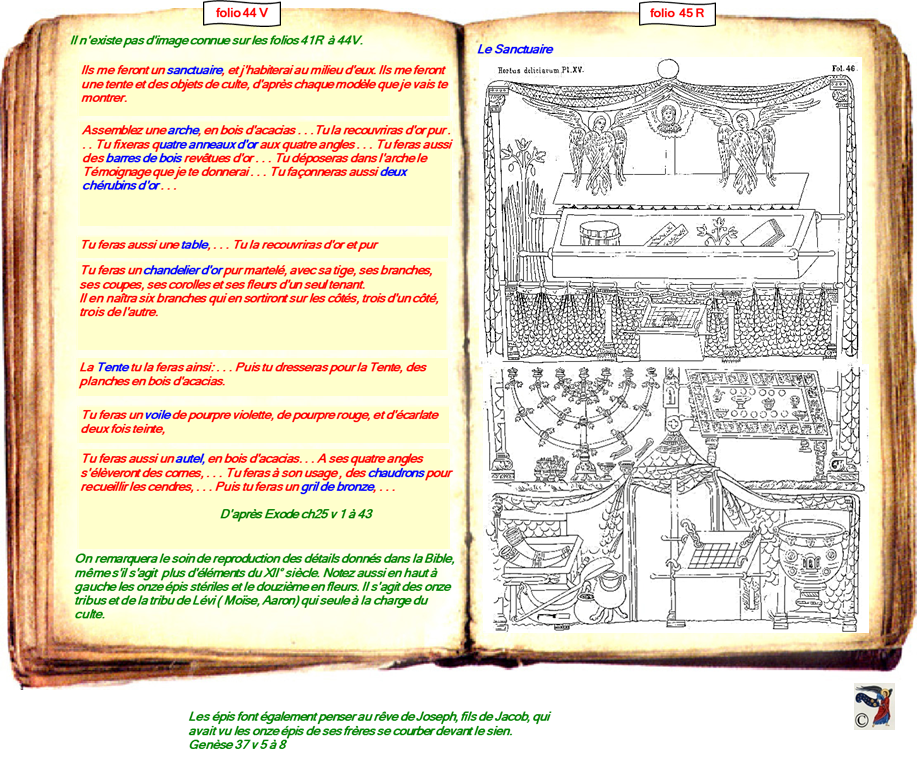 folio 44 V
Il n'existe pas d'image connue sur les folios 41R à 44V.
Ils me feront un sanctuaire, et j'habiterai au milieu d'eux. Ils me feront
une tente et des objets de culte, d'après chaque modèle que je vais te
montrer.
Assemblez une arche, en bois d'acacias . . . Tu la recouvriras d'or pur .
. . Tu fixeras quatre anneaux d'or aux quatre angles . . . Tu feras aussi
des barres de bois revêtues d'or . . . Tu déposeras dans l'arche le
Témoignage que je te donnerai . . . Tu façonneras aussi deux
chérubins d'or . . .
Tu feras aussi une table, . . . Tu la recouvriras d'or et pur
Tu feras un chandelier d'or pur martelé, avec sa tige, ses branches,
ses coupes, ses corolles et ses fleurs d'un seul tenant.
Il en naîtra six branches qui en sortiront sur les côtés, trois d'un côté,
trois de l'autre.
La Tente tu la feras ainsi: . . . Puis tu dresseras pour la Tente, des
planches en bois d'acacias.
Tu feras un voile de pourpre violette, de pourpre rouge, et d'écarlate
deux fois teinte,
Tu feras aussi un autel, en bois d'acacias. . . A ses quatre angles
s'élèveront des cornes, . . . Tu feras à son usage , des chaudrons pour
recueillir les cendres, . . . Puis tu feras un gril de bronze, . . .
D'après Exode ch25 v 1 à 43
On remarquera le soin de reproduction des détails donnés dans la Bible,
même s'il s'agit plus d'éléments du XII° siècle. Notez aussi en haut à
gauche les onze épis stériles et le douzième en fleurs. Il s'agit des onze
tribus et de la tribu de Lévi ( Moïse, Aaron) qui seule à la charge du
culte.
folio 45 R
Le Sanctuaire
Hortus deliciarum. Pl. XV.
Fol. 46.
Les épis font également penser au rêve de Joseph, fils de Jacob, qui
avait vu les onze épis de ses frères se courber devant le sien.
Genèse 37 v 5 à 8
©